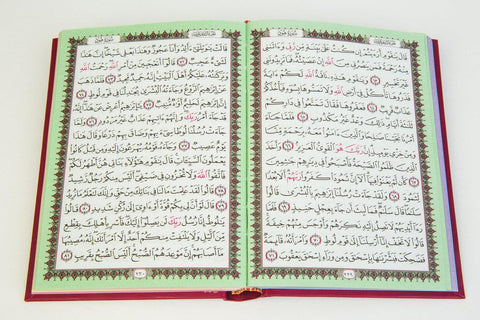 قَالَ يَٰقَوْمِ أَرَءَيْتُمْ إِن كُنتُ عَلَىٰ بَيِّنَةٍ مِّن رَّبِّي وَءَاتَىٰنِي
مِنْهُ رَحْمَةً فَمَن يَنصُرُنِي مِنَ ٱللَّهِ إِنْ عَصَيْتُهُۥ فَمَا تَزِيدُونَنِي
غَيْرَ تَخْسِيرٍ ٦٣ وَيَٰقَوْمِ هَٰذِهِۦ نَاقَةُ ٱللَّهِ لَكُمْ ءَايَةً
فَذَرُوهَا تَأْكُلْ فِيٓ أَرْضِ ٱللَّهِ وَلَا تَمَسُّوهَا بِسُوٓءٍ فَيَأْخُذَكُمْ
عَذَابٌ قَرِيبٌ ٦٤ فَعَقَرُوهَا فَقَالَ تَمَتَّعُوا۟ فِي دَارِكُمْ
ثَلَٰثَةَ أَيَّامٍ ذَٰلِكَ وَعْدٌ غَيْرُ مَكْذُوبٍ ٦٥ فَلَمَّا جَآءَ
أَمْرُنَا نَجَّيْنَا صَٰلِحًا وَٱلَّذِينَ ءَامَنُوا۟ مَعَهُۥ بِرَحْمَةٍ مِّنَّا
وَمِنْ خِزْيِ يَوْمِئِذٍ إِنَّ رَبَّكَ هُوَ ٱلْقَوِيُّ ٱلْعَزِيزُ ٦٦ وَأَخَذَ
ٱلَّذِينَ ظَلَمُوا۟ ٱلصَّيْحَةُ فَأَصْبَحُوا۟ فِي دِيَٰرِهِمْ جَٰثِمِينَ
٦٧ كَأَن لَّمْ يَغْنَوْا۟ فِيهَآ أَلَآ إِنَّ ثَمُودَا۟ كَفَرُوا۟ رَبَّهُمْ أَلَا بُعْدًا
لِّثَمُودَ ٦٨ وَلَقَدْ جَآءَتْ رُسُلُنَآ إِبْرَٰهِيمَ بِٱلْبُشْرَىٰ قَالُوا۟
سَلَٰمًا قَالَ سَلَٰمٌ فَمَا لَبِثَ أَن جَآءَ بِعِجْلٍ حَنِيذٍ ٦٩ فَلَمَّا
رَءَآ أَيْدِيَهُمْ لَا تَصِلُ إِلَيْهِ نَكِرَهُمْ وَأَوْجَسَ مِنْهُمْ خِيفَةً
قَالُوا۟ لَا تَخَفْ إِنَّآ أُرْسِلْنَآ إِلَىٰ قَوْمِ لُوطٍ ٧٠ وَٱمْرَأَتُهُۥ قَآئِمَةٌ
فَضَحِكَتْ فَبَشَّرْنَٰهَا بِإِسْحَٰقَ وَمِن وَرَآءِ إِسْحَٰقَ يَعْقُوبَ ٧١
٢٢٩
قَالَتْ يَٰوَيْلَتَىٰٓ ءَأَلِدُ وَأَنَا۠ عَجُوزٌ وَهَٰذَا بَعْلِي شَيْخًا إِنَّ هَٰذَا
لَشَيْءٌ عَجِيبٌ ٧٢ قَالُوٓا۟ أَتَعْجَبِينَ مِنْ أَمْرِ ٱللَّهِ رَحْمَتُ ٱللَّهِ
وَبَرَكَٰتُهُۥ عَلَيْكُمْ أَهْلَ ٱلْبَيْتِ إِنَّهُۥ حَمِيدٌ مَّجِيدٌ ٧٣ فَلَمَّا ذَهَبَ
عَنْ إِبْرَٰهِيمَ ٱلرَّوْعُ وَجَآءَتْهُ ٱلْبُشْرَىٰ يُجَٰدِلُنَا فِي قَوْمِ لُوطٍ ٧٤
إِنَّ إِبْرَٰهِيمَ لَحَلِيمٌ أَوَّٰهٌ مُّنِيبٌ ٧٥ يَٰٓإِبْرَٰهِيمُ أَعْرِضْ عَنْ هَٰذَآ
إِنَّهُۥ قَدْ جَآءَ أَمْرُ رَبِّكَ وَإِنَّهُمْ ءَاتِيهِمْ عَذَابٌ غَيْرُ مَرْدُودٍ ٧٦ وَلَمَّا
جَآءَتْ رُسُلُنَا لُوطًا سِيٓءَ بِهِمْ وَضَاقَ بِهِمْ ذَرْعًا وَقَالَ هَٰذَا
يَوْمٌ عَصِيبٌ ٧٧ وَجَآءَهُۥ قَوْمُهُۥ يُهْرَعُونَ إِلَيْهِ وَمِن قَبْلُ كَانُوا۟
يَعْمَلُونَ ٱلسَّيِّـَٔاتِ قَالَ يَٰقَوْمِ هَٰٓؤُلَآءِ بَنَاتِي هُنَّ أَطْهَرُ لَكُمْ
فَٱتَّقُوا۟ ٱللَّهَ وَلَا تُخْزُونِ فِي ضَيْفِيٓ أَلَيْسَ مِنكُمْ رَجُلٌ رَّشِيدٌ ٧٨
قَالُوا۟ لَقَدْ عَلِمْتَ مَا لَنَا فِي بَنَاتِكَ مِنْ حَقٍّ وَإِنَّكَ لَتَعْلَمُ مَا نُرِيدُ
٧٩ قَالَ لَوْ أَنَّ لِي بِكُمْ قُوَّةً أَوْ ءَاوِيٓ إِلَىٰ رُكْنٍ شَدِيدٍ ٨٠ قَالُوا۟
يَٰلُوطُ إِنَّا رُسُلُ رَبِّكَ لَن يَصِلُوٓا۟ إِلَيْكَ فَأَسْرِ بِأَهْلِكَ بِقِطْعٍ
مِّنَ ٱلَّيْلِ وَلَا يَلْتَفِتْ مِنكُمْ أَحَدٌ إِلَّا ٱمْرَأَتَكَ إِنَّهُۥ مُصِيبُهَا
مَآ أَصَابَهُمْ إِنَّ مَوْعِدَهُمُ ٱلصُّبْحُ أَلَيْسَ ٱلصُّبْحُ بِقَرِيبٍ ٨١
٢٣٠